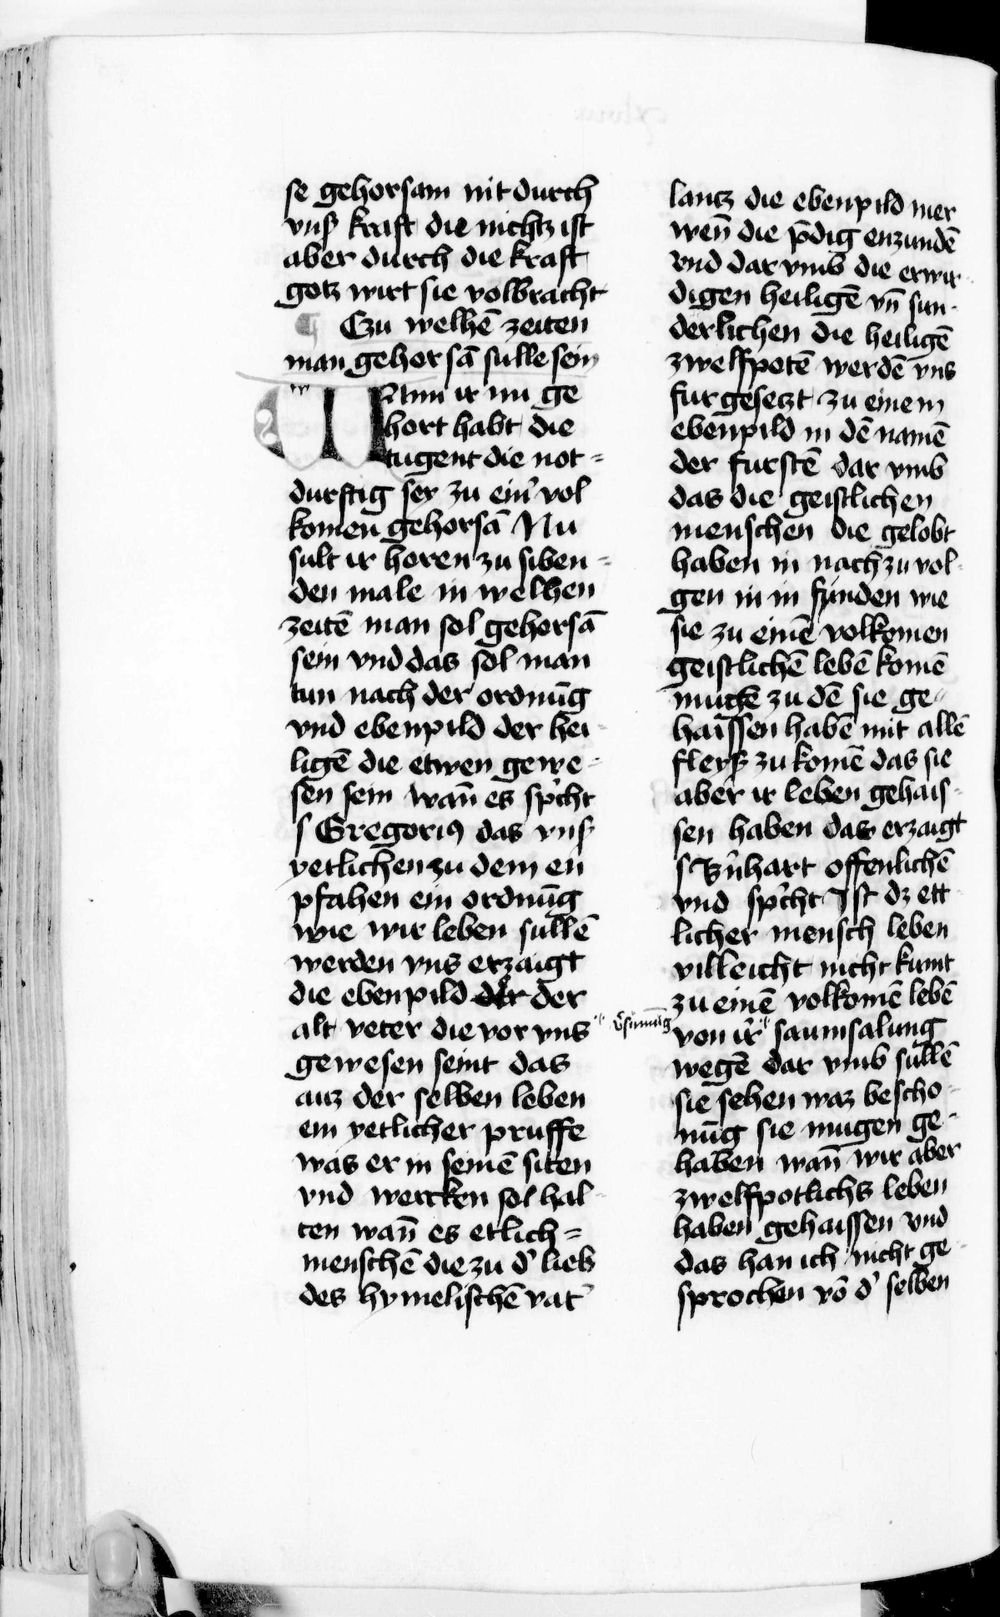 se gehorsam nit durch
vnß kraft die nichtz ist
aber durch die kraft
gotz wirt sie volbracht
¶ Czu welhē zeiten
man gehorsā sulle sein
WAnn ir nu ge
hort habt die
tugent die not=
durftig sey zu ein̛ vol
komen gehorsā Nu
sult ir horen zu siben=
den male in welhen
zeitē man sol gehorsā
sein vnd das sol man
tun nach der ordnūg
vnd ebenpild der hei
ligē die etwen gewe=
sen sein wañ es sp̛cht
s Gregoriꝰ das vnß
yetlichen zu dem en
pfahen ein ordnūg
wie wir leben sullē
werden vns erzaigt
die ebenpild der der
alt veter die vor vns
gewesen seint das
auz der selben leben
ein yetlicher pruffe
was er in seinē siten
vnd wercken sol hal
ten wañ es etlich=
menschē die zu d̛ lieb
des hymelischē vat̛
lantz die ebenpild mer
weñ die p̄dig enzundē
vnd dar vmb die erwir
digen heiligē vñ sun
derlichen die heiligē
zwelfpotē werdē vns
fur gesetzt zu einem
ebenpild in dē namē
der furstē dar vmb
das die geistlichen
menschen die gelobt
haben in nach zu vol
gen in in fynden wie
sie zu einē volkomen
geistlichē lebē komē
mugē zu dē sie ge
haissen habē mit allē
fleyß zu komē das sie
aber ir leben gehais
sen haben daz erzaigt
s B̛nhart offenlichē
vnd sp̛cht Ist dz ett
licher mensch leben
villeicht nicht kumt
zu einē volkomē lebē
v̛sumūg
von ir̛ saumsalung
wegē dar vmb sullē
sie sehen waz bescho
nūg sie mugen ge
haben wañ wir aber
zwelfpotlichs leben
haben gehaissen vnd
das han ich nicht ge
sprochen vō d̛ selben